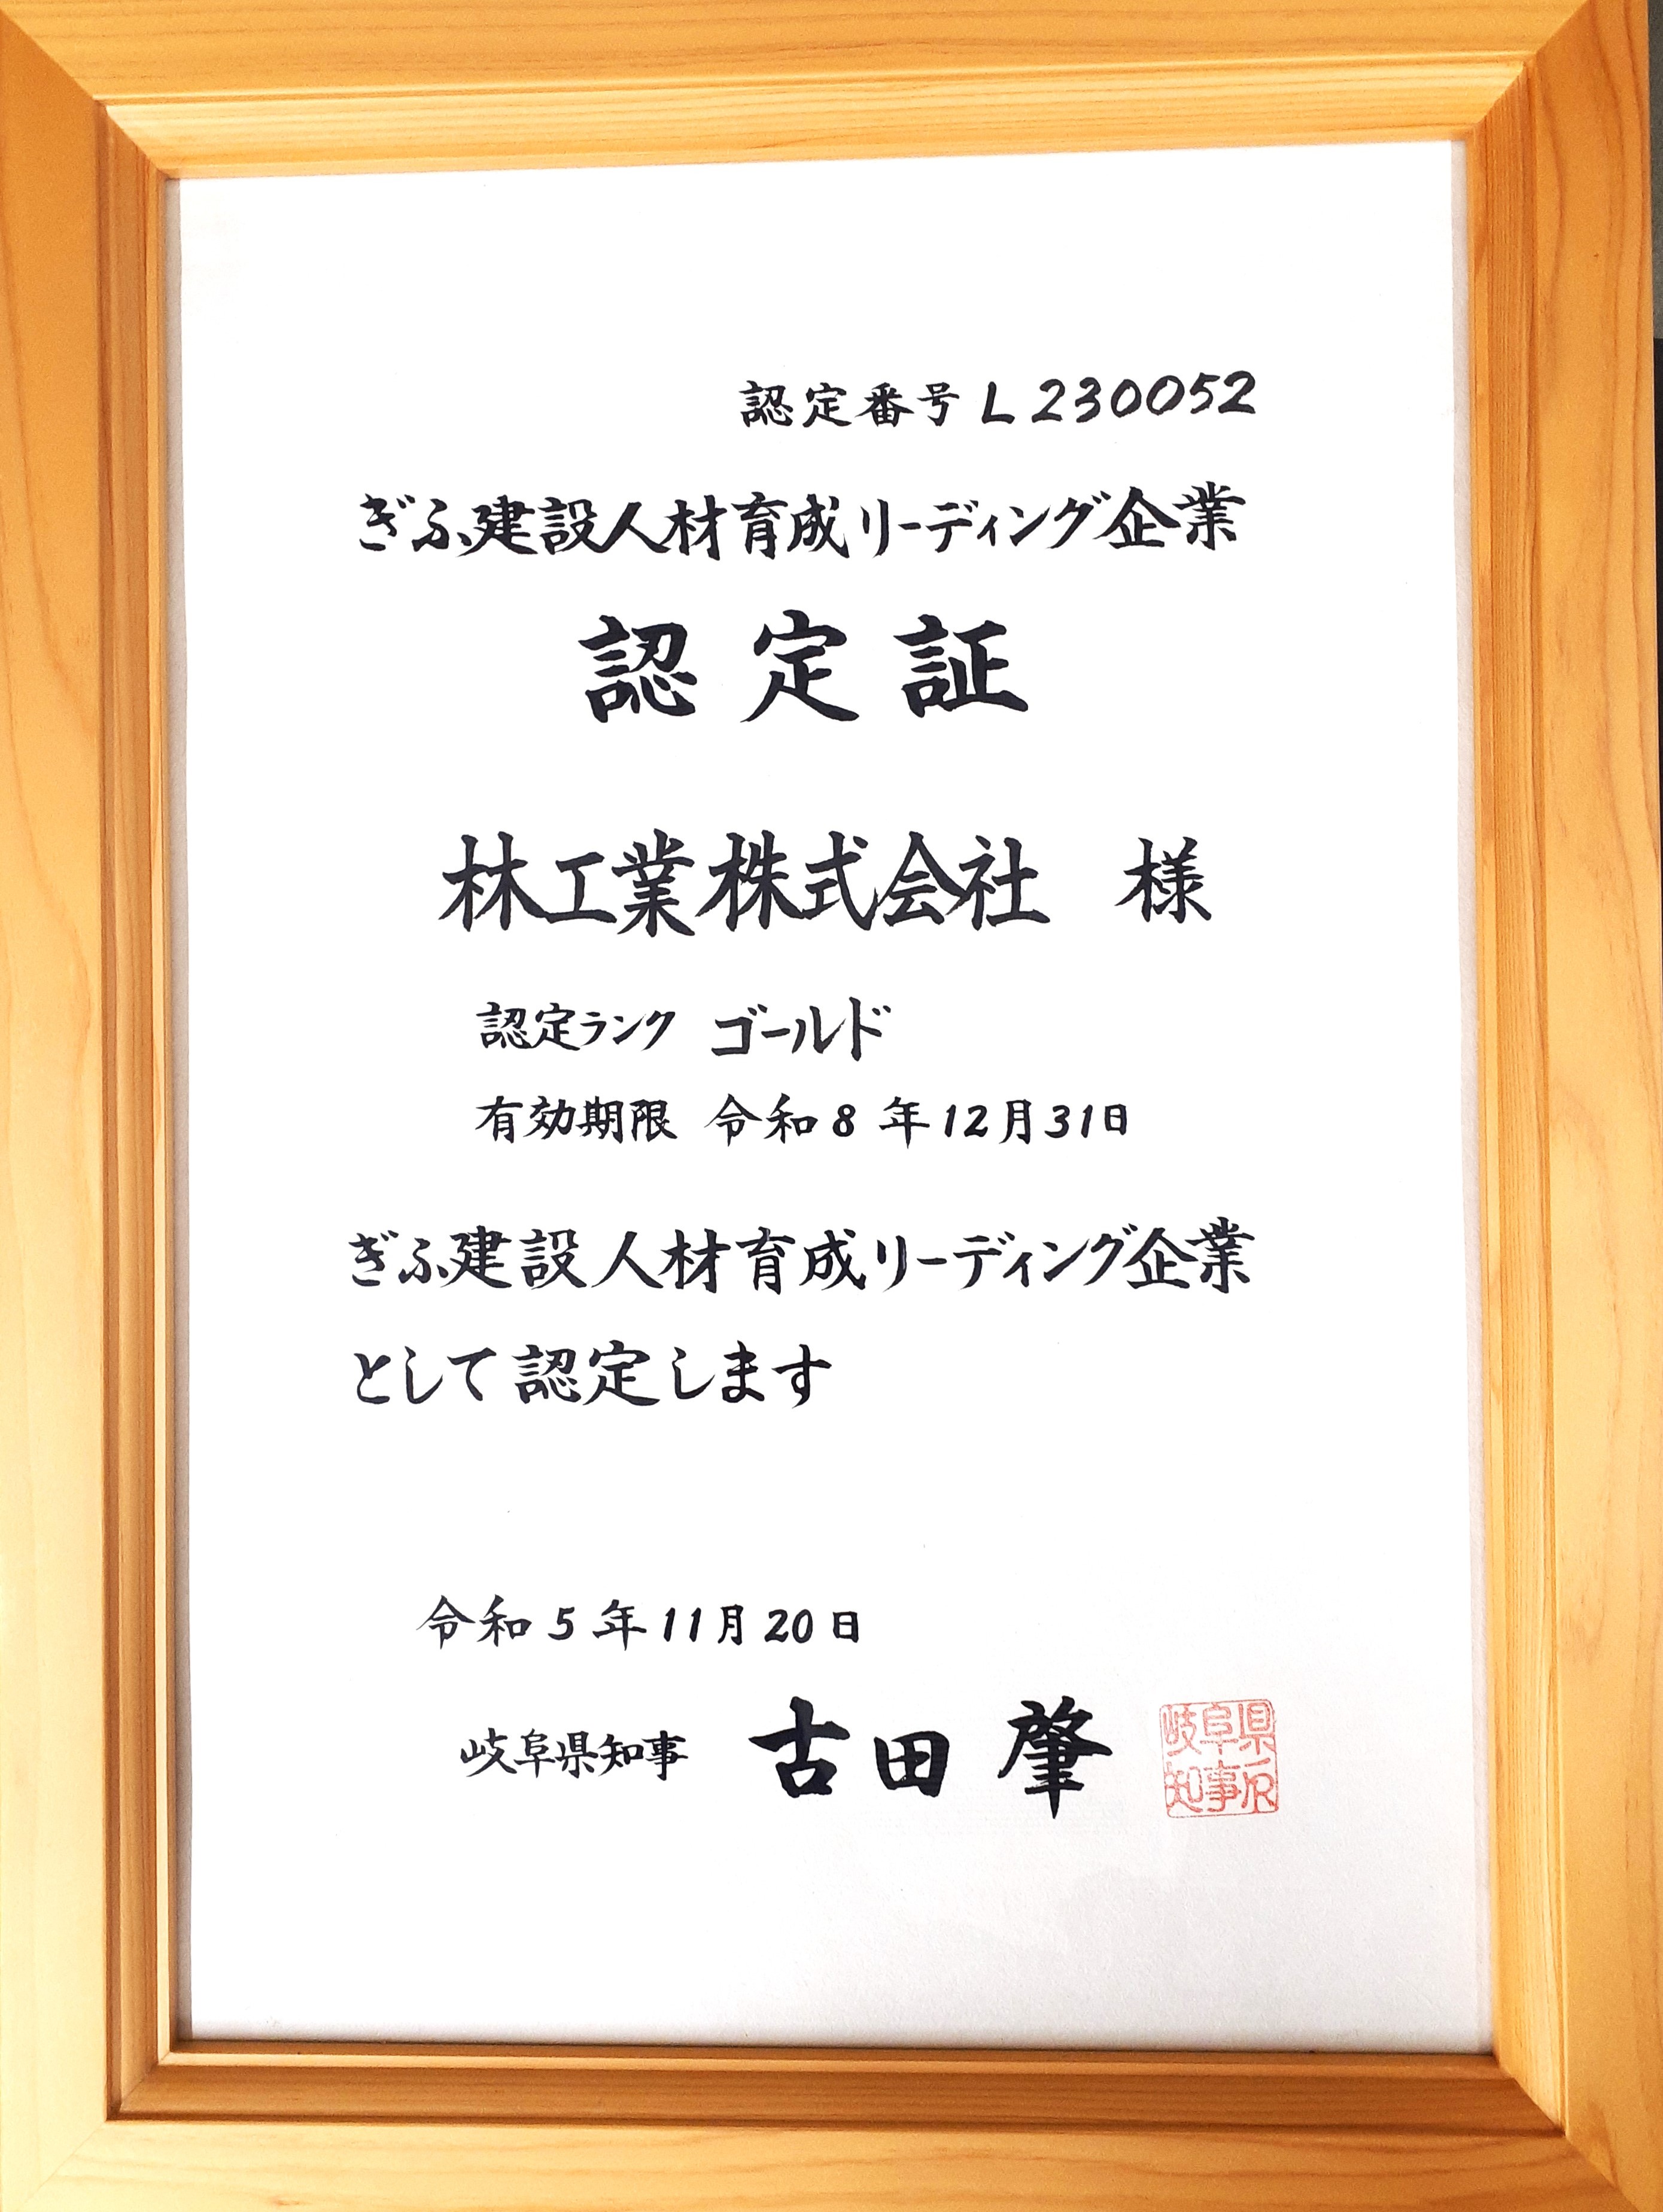 認定番号L230052
ぎふ建設人材育成リーディング企業
認定証
林工業株式会社 様
認定ランク ゴールド
有効期限 令和8年12月31日
ぎふ建設人材育成リーディング企業
として認定します
令和5年11月20日
岐阜県知事 古田 肇
岐阜県
知事印